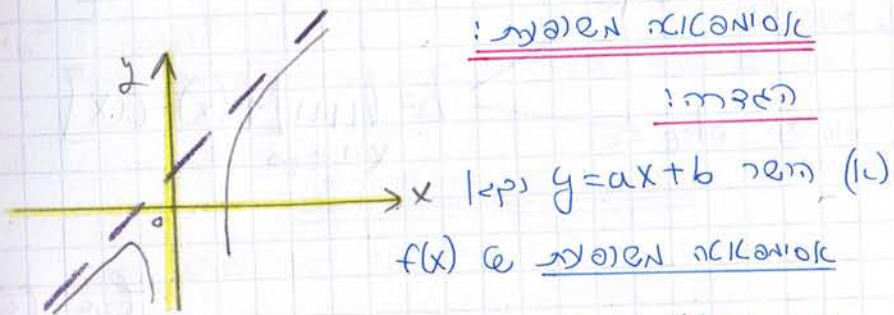 אסימפטוטה משופעת:
הגדרה:
(1) הישר y=ax+b נקרא
אסימפטוטה משופעת של f(x)
y
x
0